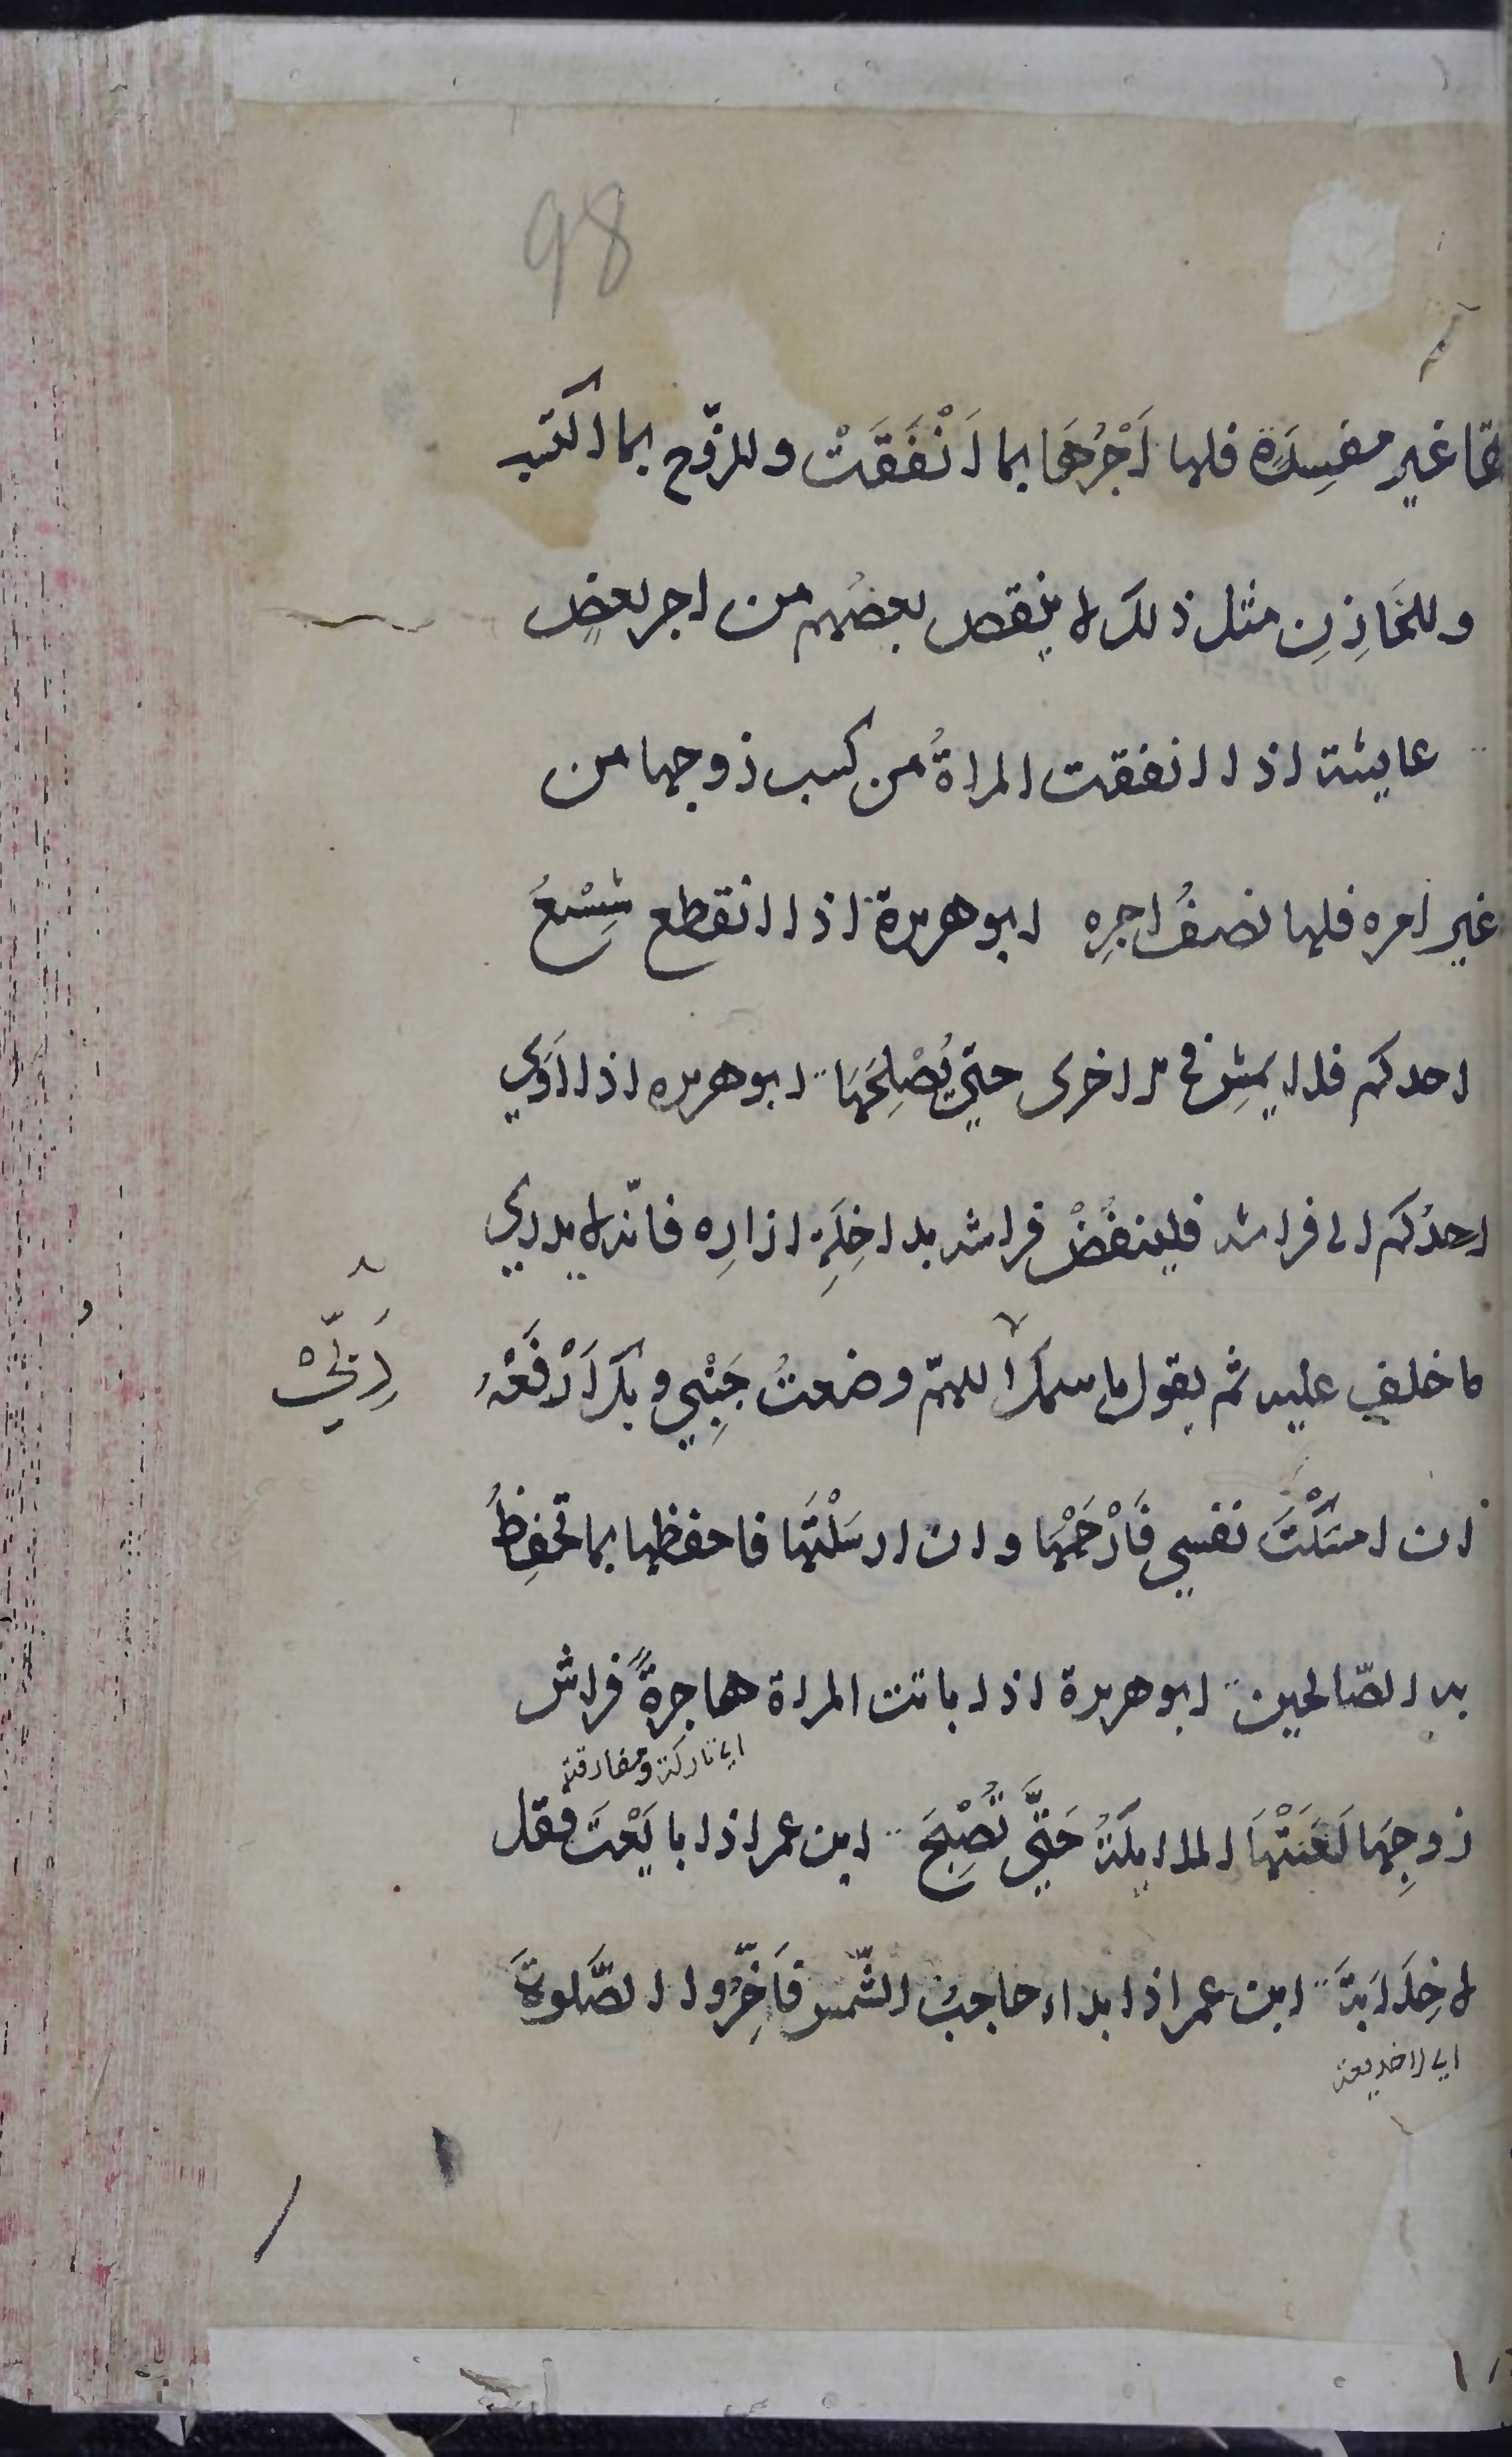 98
غير مفسِدَة فلها اَجْرُهَا بما اَنْفَقَتْ وللزّوج بما اكتسب
وللخَازِنِ مثل ذلك لا ينقص بعضُهم من اجر بعضٍ
عايشة اذا انفقت المراةُ من كسب زوجها من
غير امره فلها نصفُ اجرِه ابو هريرة اذا انقطع شِسْعُ
احدكم فلا يمشِ في الاخرى حتي يُصْلِحَهَا ابو هريره اذا اَوَي
احدُكم الى فراشه فلينفُضْ فراشه بداخِلَةِ ازارِه فانّه لا يدري
ما خلف عليه ثم يقول باسمك اللهمّ وضعتُ جَنْبِي وبك اَرْفَعُهُ
رَبِّيْ
ان امسَكْتَ نفسي فَارْحَمْهَا وان ارسَلْتَهَا فاحفظها بما تحفِظُ
به الصّالحين ابو هريرة اذا باتت المراة هاجرةً فراش
اي تاركة ومفارقة
زوجِهَا لَعَنَتْهَا الملايكَةُ حَتَّي تُصْبِحَ ابن عمر اذا بايَعْتَ فقل
لا خِلَابَةَ ابن عمر اذا بداء حاجبُ الشّمس فَاَخِّرُوا الصَّلوةَ
اي لا خديعة